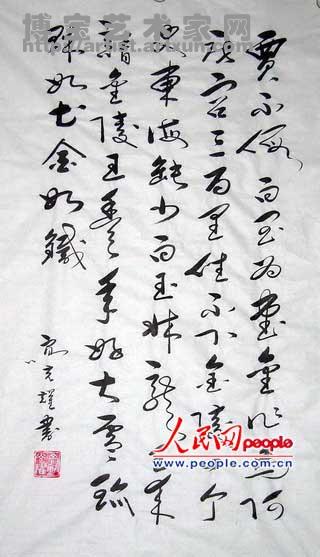 博宝艺术家网
http://artist.artxun.com
賈不假白玉为堂金作马阿
房宫三百里住不下金陵一个
史東海缺少白玉床龍王来
請金陵王豐年好大雪珍
珠如土金如鐵
書
人民网 people
www.people.com.cn